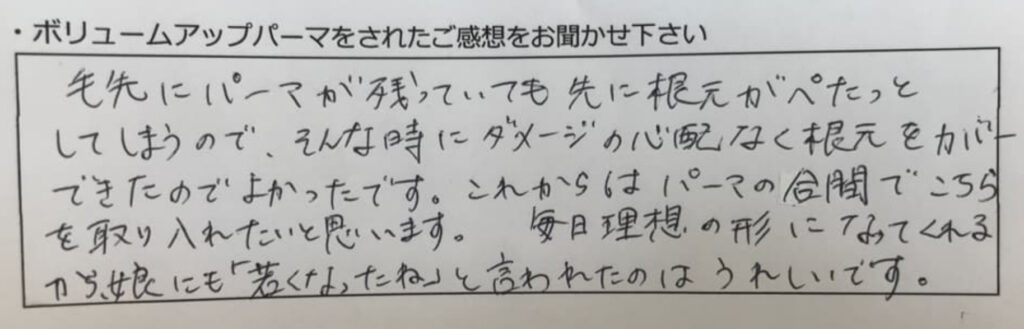 ・ボリュームアップパーマをされたご感想をお聞かせ下さい
毛先にパーマが残っていても先に根元がぺたっと
してしまうので、そんな時にダメージの心配なく根元をカバー
できたのでよかったです。これからはパーマの合間でこちら
を取り入れたいと思います。 毎日理想の形になってくれる
から、娘にも「若くなったね」と言われたのはうれしいです。